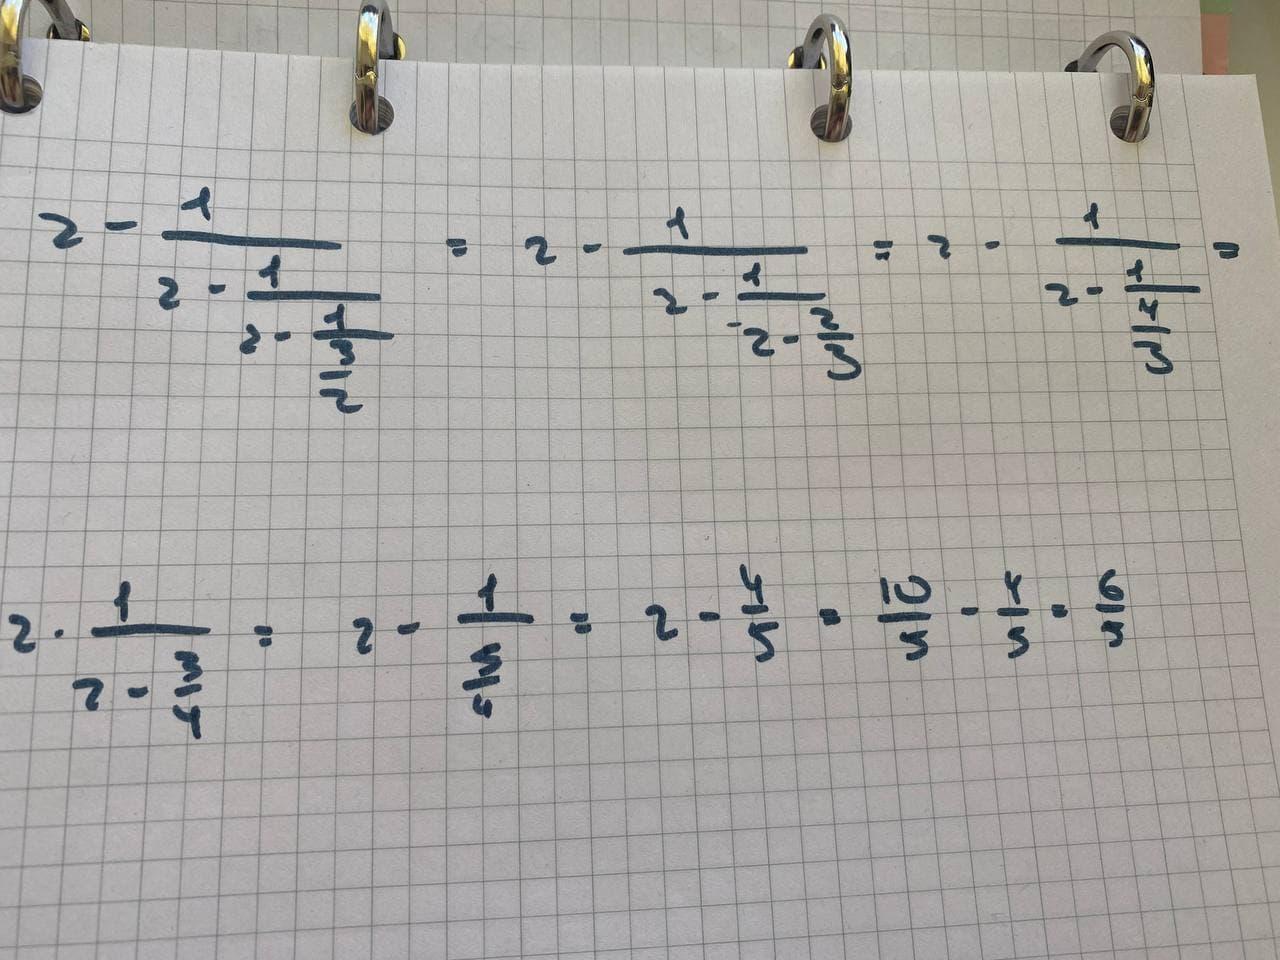 2 - 1/(2 - 1/(2 - 1/(3/2))) = 2 - 1/(2 - 1/(2 - 2/3)) = 2 - 1/(2 - 1/(4/3)) =
2 · 1/(2 - 3/4) = 2 - 1/(5/4) = 2 - 4/5 = 10/5 - 4/5 = 6/5